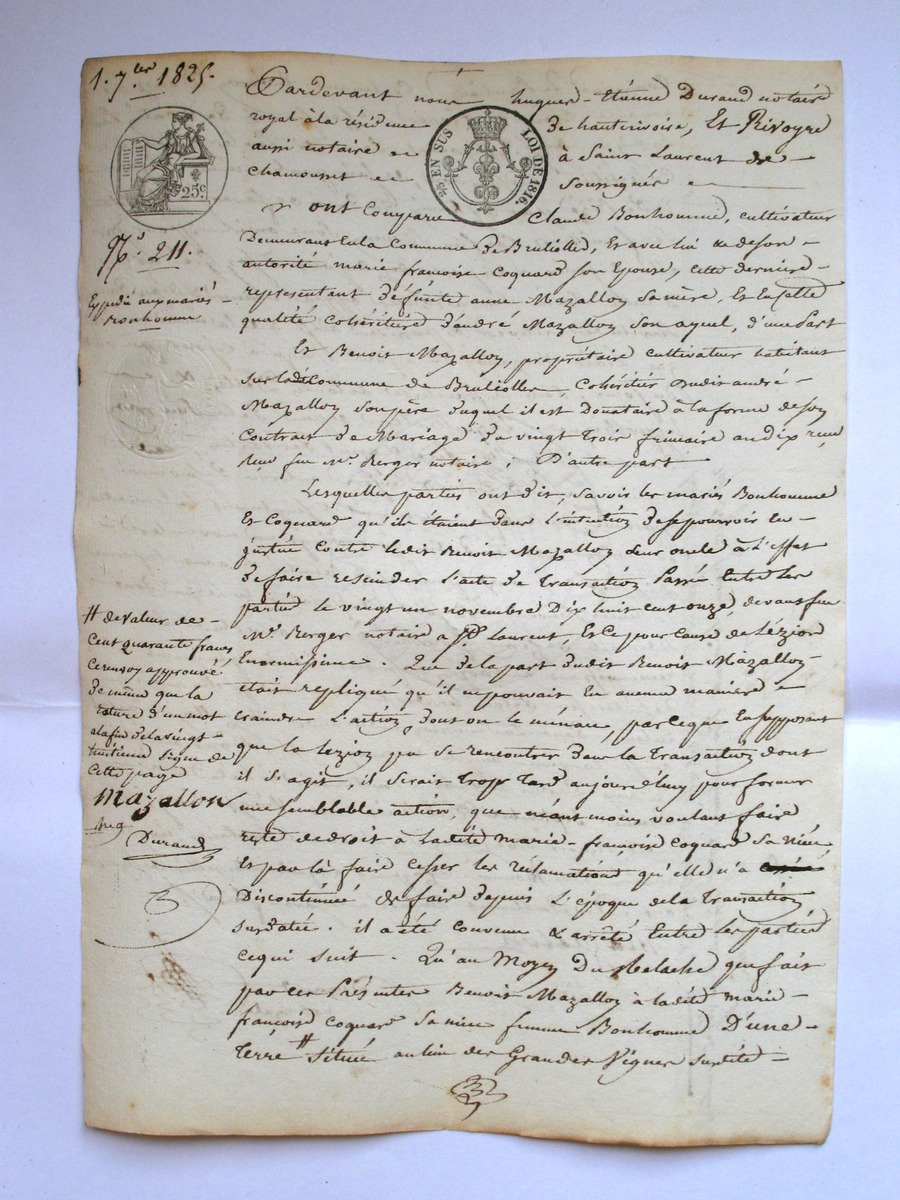 1. 7.bre 1825.
25c
5/2 EN SUS LOI DE 1816.
N.º 211.
Expédié aux mariés
Bonhomme
Pardevant nous hugues-Etienne Durand notaire
royal à la résidence de hauterivoire, Et Rivoyre
aussi notaire à Saint Laurent de
Chamousset Soussignés
ont Comparu Claude Bonhomme, cultivateur
Demeurant En la Commune de Brulioles, Et avec lui de son
autorité marie françoise Coquard son Epouse, cette derniere
représentant défunte anne Mazallon sa mère, Et En cette
qualité Cohéritière d'andré Mazallon son ayeul, d'une part
Et Benoit Mazallon, propriétaire cultivateur habitant
sur ladte Commune de Brulioles, Cohéritier Dudit andré
Mazallon son père duquel il est Donataire à la forme de son
Contrat de Mariage du vingt trois frimaire an dix reçu
feu Me. Berger notaire, D'autre part
Lesquelles parties ont dit, Savoir les mariés Bonhomme
Et Coquard qu'ils étaient dans L'intention de se pourvoir En
justice contre ledit Benoit Mazallon leur oncle à L'effet
de faire resinder L'acte de Transaction Passé Entre les
parties le vingt un novembre Dix huit cent onze, devant feu
Me. Berger notaire à St. Laurent, Et Ce pour Cause de Lézion
Enormissime. Que de la part dudit Benoit Mazallon
était répliqué qu'il ne pouvait En aucune manière
craindre L'action dont on le menace, parceque En supposant
que la lezion pu se rencontrer dans la Transaction dont
il S'agit, il Serait Trop Tard aujourd'huy pour former
une semblable action, que néant moins voulant faire
reste de droit à Ladite Marie-françoise Coquard sa nièce
Et par là faire cesser les réclamations qu'elle n'a
Discontinuée de faire depuis L'époque de la Transaction
susdatée. il a été Convenu & arrêté Entre les parties
ce qui suit. Qu'au Moyen Du Relache que fait
par ces Présentes Benoit Mazallon à ladite marie
françoise Coquard Sa nièce femme Bonhomme D'une
Terre # Située au lieu des Grandes Vignes susdite
# de valeur de
Cent quarante francs
Ce renvoy approuvé
de même que la
rature d'un mot
à la fin de la vingt
huitième ligne de
Cette page
Mazallon
Durand